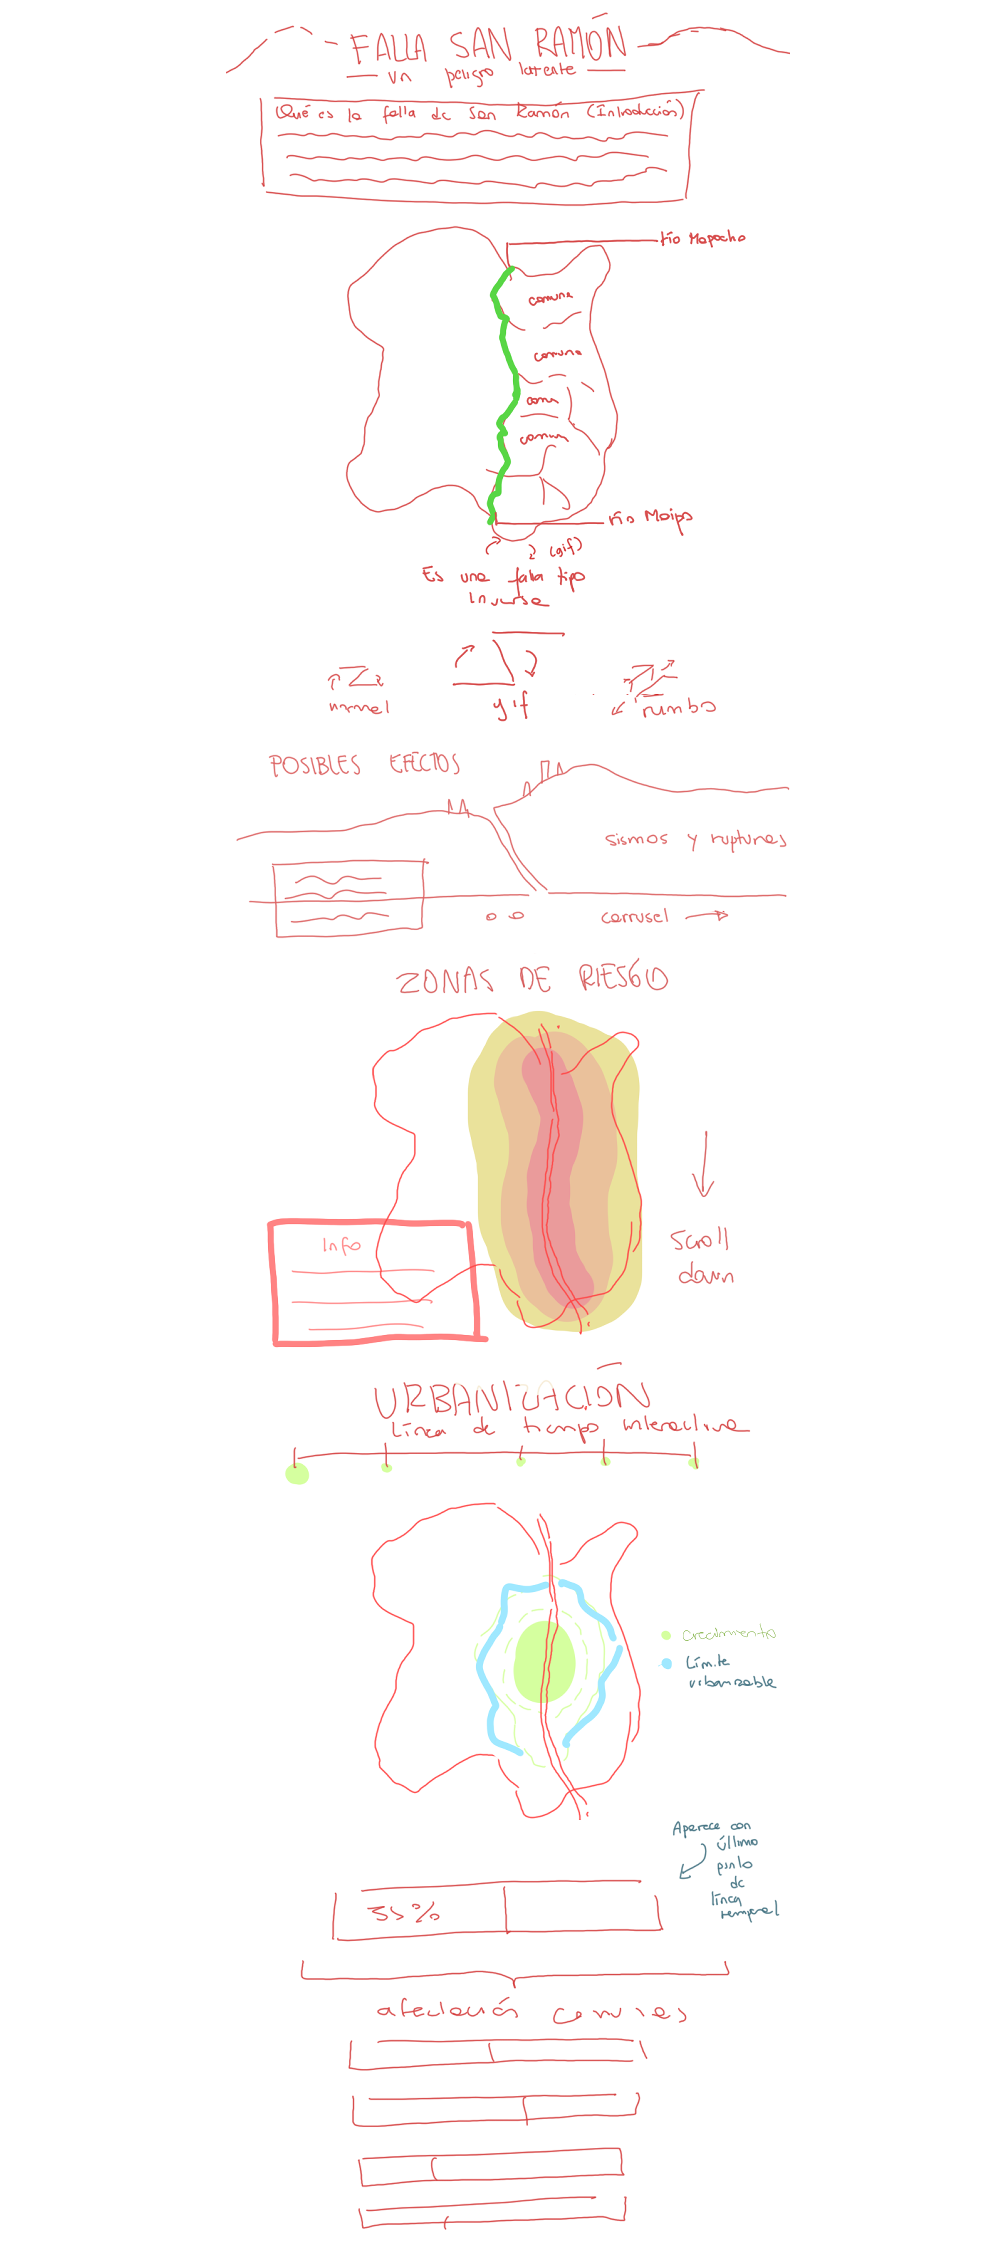 FALLA SAN RAMÓN
un peligro latente
Qué es la falla de San Ramón (Introducción)
río Mapocho
comuna
comuna
comu
comun
río Maipo
(gif)
Es una falla tipo
inversa
normal
gif
rumbo
POSIBLES EFECTOS
sismos y rupturas
carrusel
ZONAS DE RIESGO
Info
Scroll
down
URBANIZACIÓN
Línea de tiempo interactiva
Crecimiento
Límite
urbanizable
Aparece con
último
punto
de
línea
temporal
35%
afectación comunas